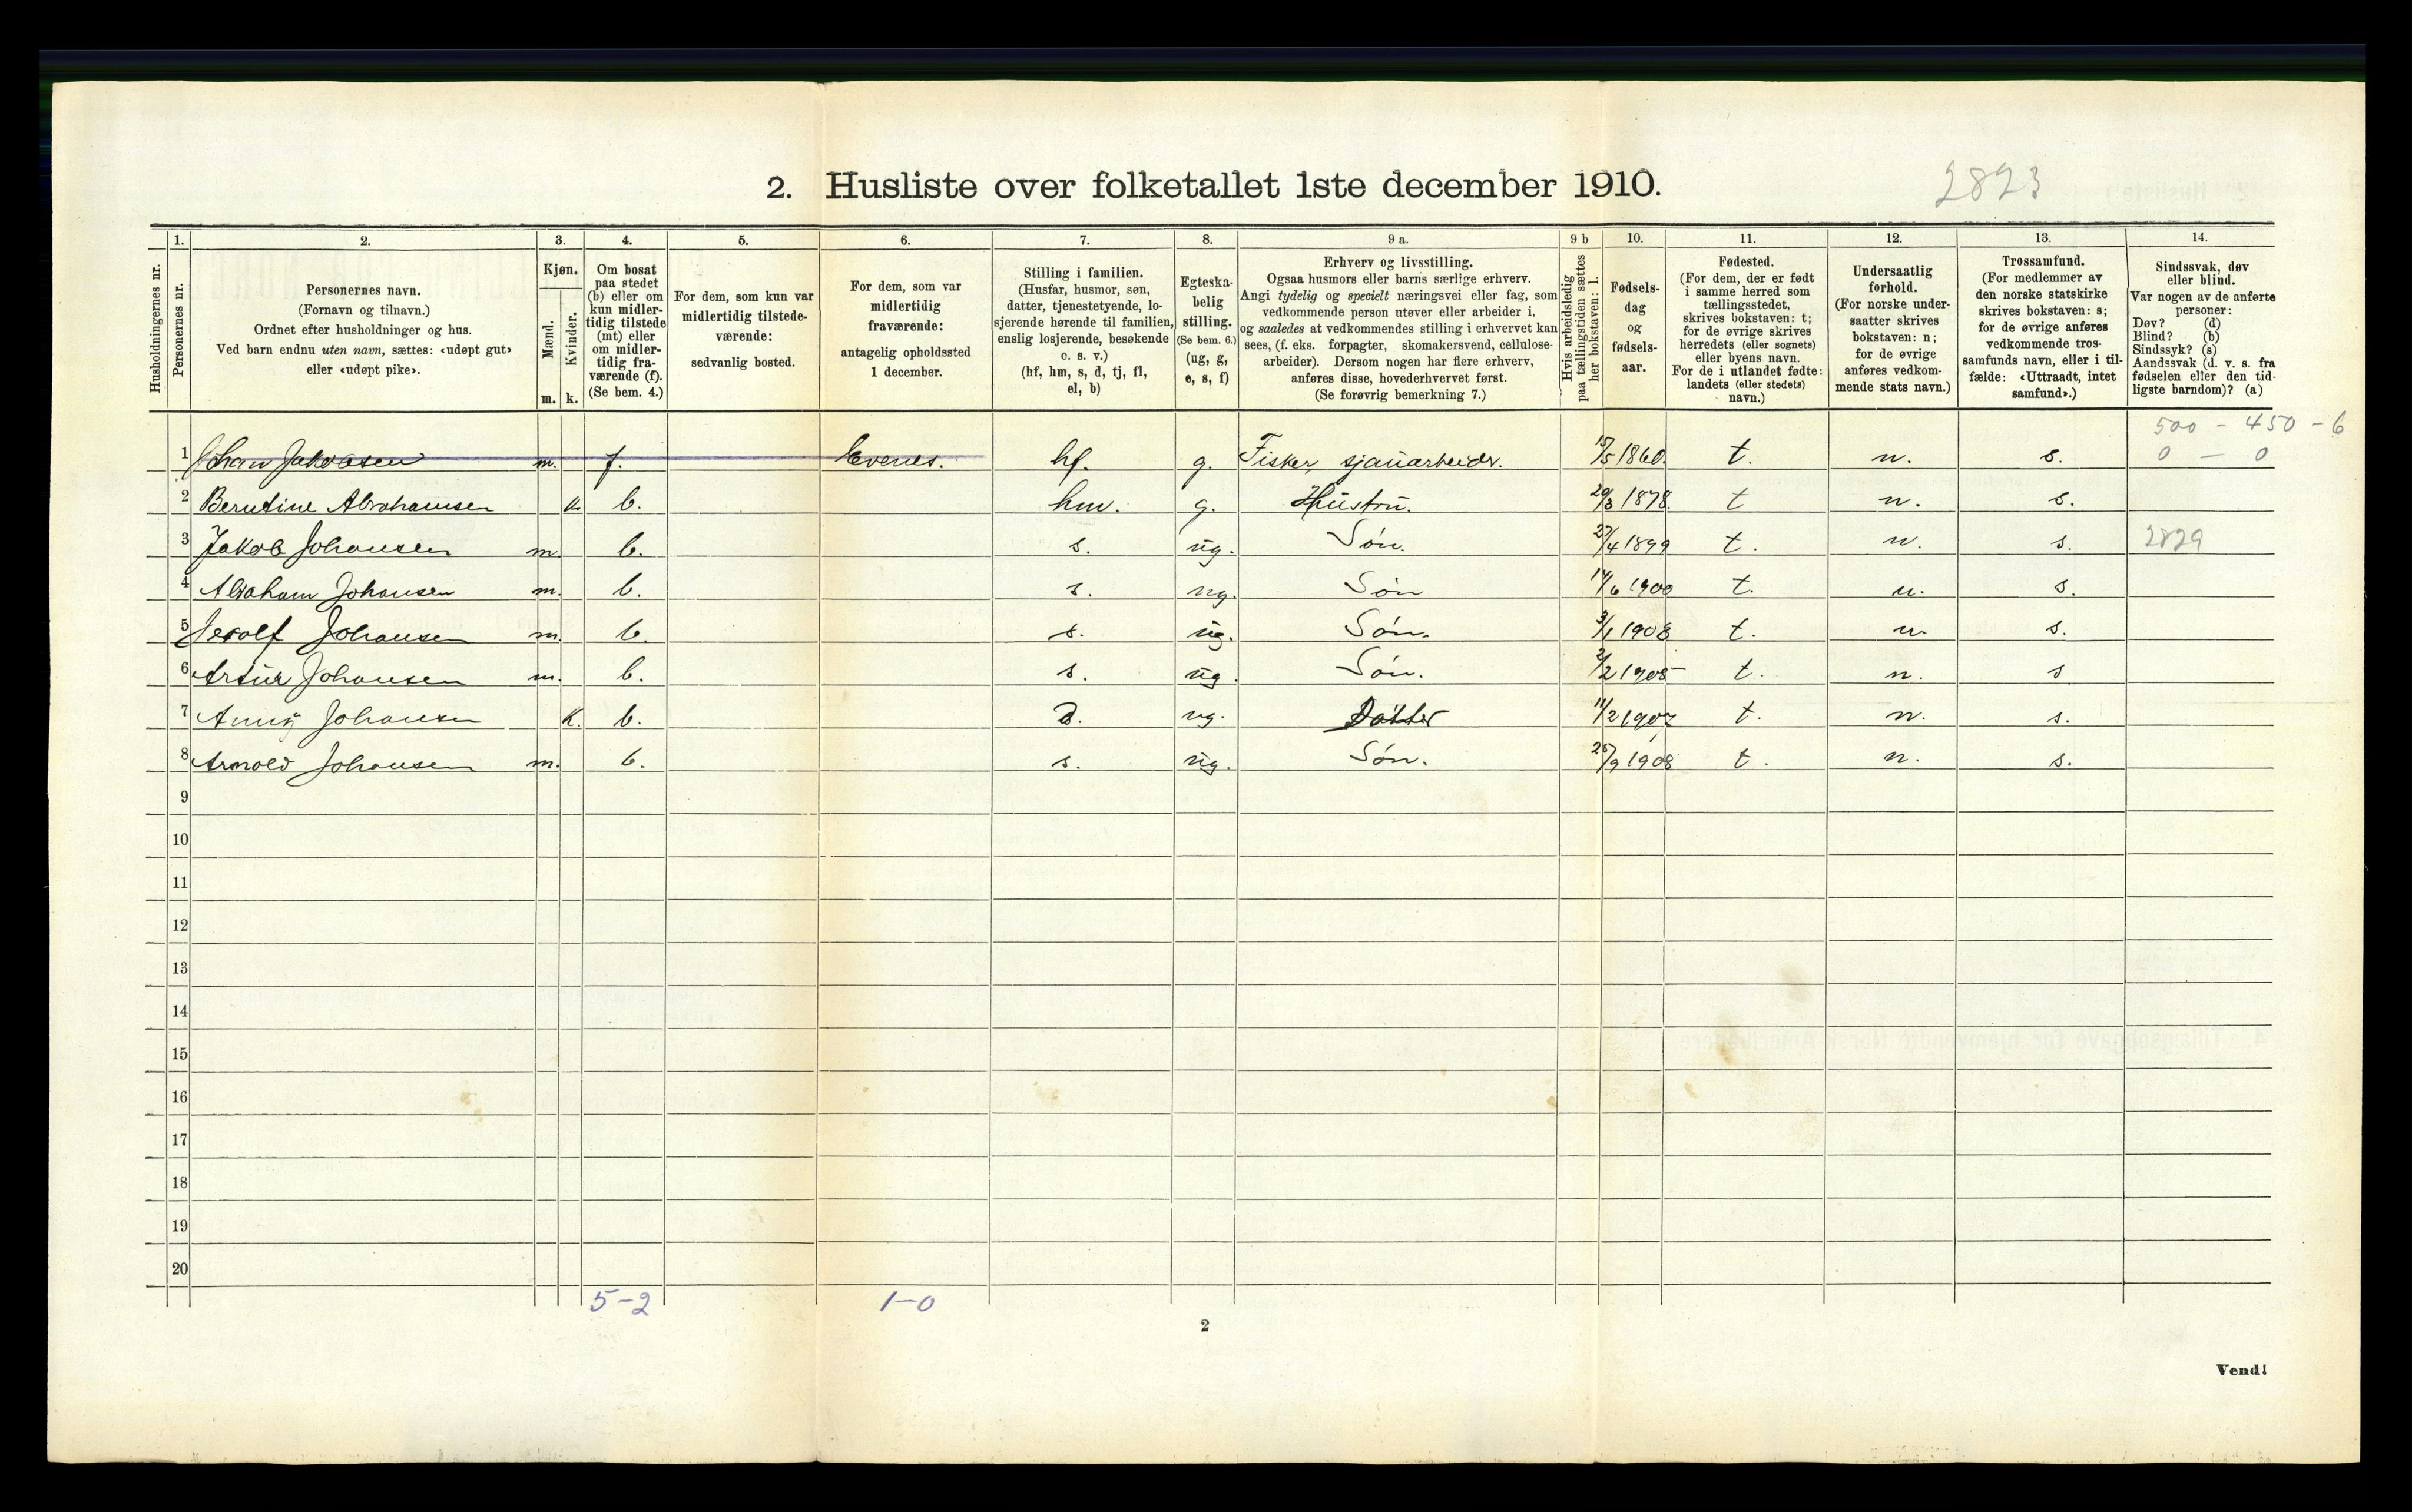 2. Husliste over folketallet 1ste december 1910.
2823
1. 2. 3. 4. 5. 6. 7. 8. 9 a. 9 b 10. 11. 12. 13. 14.
Husholdningernes nr.
Personernes nr.
Personernes navn.
(Fornavn og tilnavn.)
Ordnet efter husholdninger og hus.
Ved barn endnu uten navn, sættes: «udøpt gut»
eller «udøpt pike».
Kjøn.
Mænd.
Kvinder.
m. k.
Om bosat
paa stedet
(b) eller om
kun midler-
tidig tilstede
(mt) eller
om midler-
tidig fra-
værende (f).
(Se bem. 4.)
For dem, som kun var
midlertidig tilstede-
værende:
sedvanlig bosted.
For dem, som var
midlertidig
fraværende:
antagelig opholdssted
1 december.
Stilling i familien.
(Husfar, husmor, søn,
datter, tjenestetyende, lo-
sjerende hørende til familien,
enslig losjerende, besøkende
o. s. v.)
(hf, hm, s, d, tj, fl,
el, b)
Egteska-
belig
stilling.
(Se bem. 6.)
(ug, g,
e, s, f)
Erhverv og livsstilling.
Ogsaa husmors eller barns særlige erhverv.
Angi tydelig og specielt næringsvei eller fag, som
vedkommende person utøver eller arbeider i,
og saaledes at vedkommendes stilling i erhvervet kan
sees, (f. eks. forpagter, skomakersvend, cellulose-
arbeider). Dersom nogen har flere erhverv,
anføres disse, hovederhvervet først.
(Se forøvrig bemerkning 7.)
Hvis arbeidsledig
paa tællingstiden sættes
her bokstaven: l.
Fødsels-
dag
og
fødsels-
aar.
Fødested.
(For dem, der er født
i samme herred som
tællingsstedet,
skrives bokstaven: t;
for de øvrige skrives
herredets (eller sognets)
eller byens navn.
For de i utlandet fødte:
landets (eller stedets)
navn.)
Undersaatlig
forhold.
(For norske under-
saatter skrives
bokstaven: n;
for de øvrige
anføres vedkom-
mende stats navn.)
Trossamfund.
(For medlemmer av
den norske statskirke
skrives bokstaven: s;
for de øvrige anføres
vedkommende tros-
samfunds navn, eller i til-
fælde: «Uttraadt, intet
samfund».)
Sindssvak, døv
eller blind.
Var nogen av de anførte
personer:
Døv? (d)
Blind? (b)
Sindssyk? (s)
Aandssvak (d. v. s. fra
fødselen eller den tid-
ligste barndom)? (a)
500 - 450 - 6
1 Johan Jakobsen m. f. Evenes. hf. g. Fisker, sjauarbeidr. 15/5 1860. t. n. s. 0 - 0
2 Berntine Abrahamsen k. b. hm. g. Hustru. 20/3 1878. t n. s.
3 Jakob Johansen m. b. s. ug. Søn. 27/4 1899 t. n. s. 2829
4 Abraham Johansen m. b. s. ug. Søn 14/6 1900 t. n. s.
5 Johansen m. b. s. ug. Søn. 3/1 1903 t. n. s.
6 Artur Johansen m. b. s. ug. Søn. 2/2 1905 t. n. s
7 Anny Johansen K. b. d. ug. Datter 11/2 1907 t. n. s.
8 Arnold Johansen m. b. s. ug. Søn. 25/9 1908 t. n. s.
9
10
11
12
13
14
15
16
17
18
19
20
5-2 1-0
2
Vend!